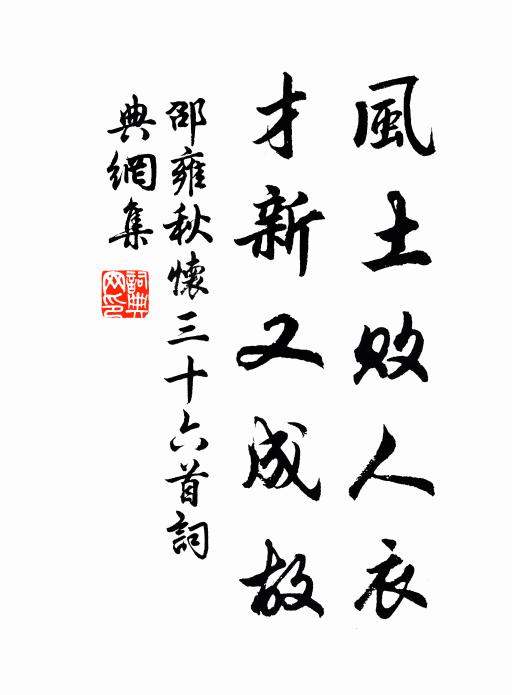 風土敗人衣
才新又成故
邵雍秋懷三十六首詞
典網集
詞典
网印